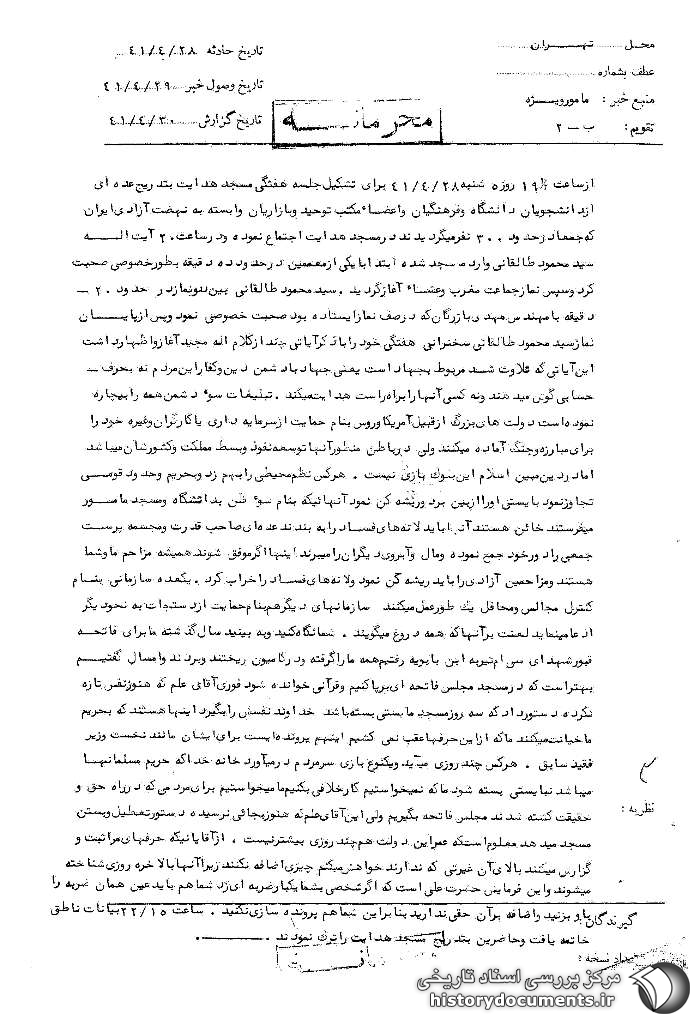 محل ...... تهــران
تاریخ حادثه ۴۱/۴/۲۸
عطف بشماره
تاریخ وصول خبر ۴۱/۴/۲۹
منبع خبر: مامورویژه
محرمانــه
تاریخ گزارش ۴۱/۴/۳۰
تقویم: ب - ۲
ازساعت ۱۹ روزه شنبه ۴۱/۴/۲۸ برای تشکیل جلسه هفتگی مسجد هدایت بتدریج عده ای
ازدانشجویان دانشگاه وفرهنگیان واعضاء مکتب توحید وبازاریان وابسته به نهضت آزادی ایران
که جمعا درحدود ۳۰۰ نفرمیگردیدند درمسجد هدایت اجتماع نموده ودرساعت ۲۰ آیت الــه
سید محمود طالقانی وارد مسجد شده ابتدا بایکی ازمعممین درحدود ده دقیقه بطورخصوصی صحبت
کرد وسپس نمازجماعت مغرب وعشاء آغازگردید . سید محمود طالقانی بین دونمازدر حدود ۲۰
دقیقه بامهندس مهدی بازرگان که درصف نمازایستاده بود صحبت خصوصی نمود وپس ازپایــان
نمازسید محمود طالقانی سخنرانی هفتگی خود را با ذکرآیاتی چند ازکلام اله مجید آغازواظهارداشت
این آیاتی که تلاوت شـد مربوط بجهاد است یعنی جهاد باد شمن دین وکفاراین مردم نه بحرف
حسابی گوش مید هند ونه کسی آنهارا براه راست هدایت میکند . تبلیغات سوء دشمن همه را بیچاره
نموده است دولت های بزرگ ازقبیل آمریکا وروس بنام حمایت ازسرمایه داری یا کارگران وغیره خود را
برای مبارزه وجنگ آماده میکنند ولی درباطن منظورآنها توسعه نفوذ وبسط مملکت وکشورشان میباشد
اما دردین مبین اسلام این بلوک بازی نیست . هرکس نظم محیطی را بهم زد وبحریم وحدود قومـی
تجاوزنمود بایستی اورا ازبین برد وریشه کن نمود آنهائیکه بنام سوء ظن بدانشگاه ومسجد مامـور
میفرستند خائن هستند آنها باید لانه های فسـاد را به بندند عده ای صاحب قدرت ومجسمه پرست
جمعی را دورخود جمع نموده ومال وآبروی دیگران را میبرند اینها اگرموفق شوند همیشه مزاحم ماوشما
هستند ومزاحمین آزادی را باید ریشه کن نمود ولانه های فسـاد را خراب کرد . یکعده سازمانی بنـام
کنترل مجالس ومحافل یک طورعمل میکنند سازمانهای دیگرهم بنام حمایت از به نحودیگر
ادعا مینماید لعنت برآنها که همه دروغ میگویند . شما نگاه کنید وبه بینید سال گذشته ما برای فاتحـه
قبورشهدای سی ام تیربه ابن بابویه رفتیم همه مارا گرفته ودرکامیون ریختند وبردند وامسال گفتیــم
بهتراست که درمسجد مجلس فاتحه ای برپاکنیم وقرآنی خوانده شود فوری آقای علم که هنوزنفس تازه
نکرده دستورداد که سه روزمسجد بایستی بسته باشد خداوند نفسش را بگیرد اینها هستند که بحریم
ما خیانت میکنند ما که ازاین حرفها عقب نمی کشیم اینهم پرونده ایست برای ایشان مانند نخست وزیر
فقید سابق . هرکس چند روزی میآید ویکنوع بازی سرمردم درمیآورد خانه خدا که حریم مسلمانهـا
میباشد نبایستی بسته شود ما که نمیخواستیم کارخلافی بکنیم ما میخواستیم برای مردمی که درراه حق و
حقیقت کشته شدند مجلس فاتحه بگیریم ولی این آقای علم که هنوزبجائی نرسیده دستورتعطیل وبستن
مسجد مید هد معلوم است که عمراین دولت هم چند روزی بیشترنیست ، ازآقایانیکه حرفهای مراثبت و
گزارش میکنند بالای آن غیرتی که ندارند خواهش میکنم چیزی اضافه نکنند زیرا آنها بالاخره روزی شناخته
میشوند واین فرمایش حضرت علی است که اگرشخصی بشما یکبارضربه ای زد شما هم باید عین همان ضربه را
باو بزنید واضافه برآن حقی ندارید بنابراین شما هم پرونده سازی نکنید . ساعت ۲۲/۱۵ بیانات ناطق
خاتمه یافت وحاضرین بتدریج مسجد هدایت را ترک نمودند .
نظریه :
گیرندگان
تعداد نسخه :
مرکز بررسی اسناد تاریخی
historydocuments.ir